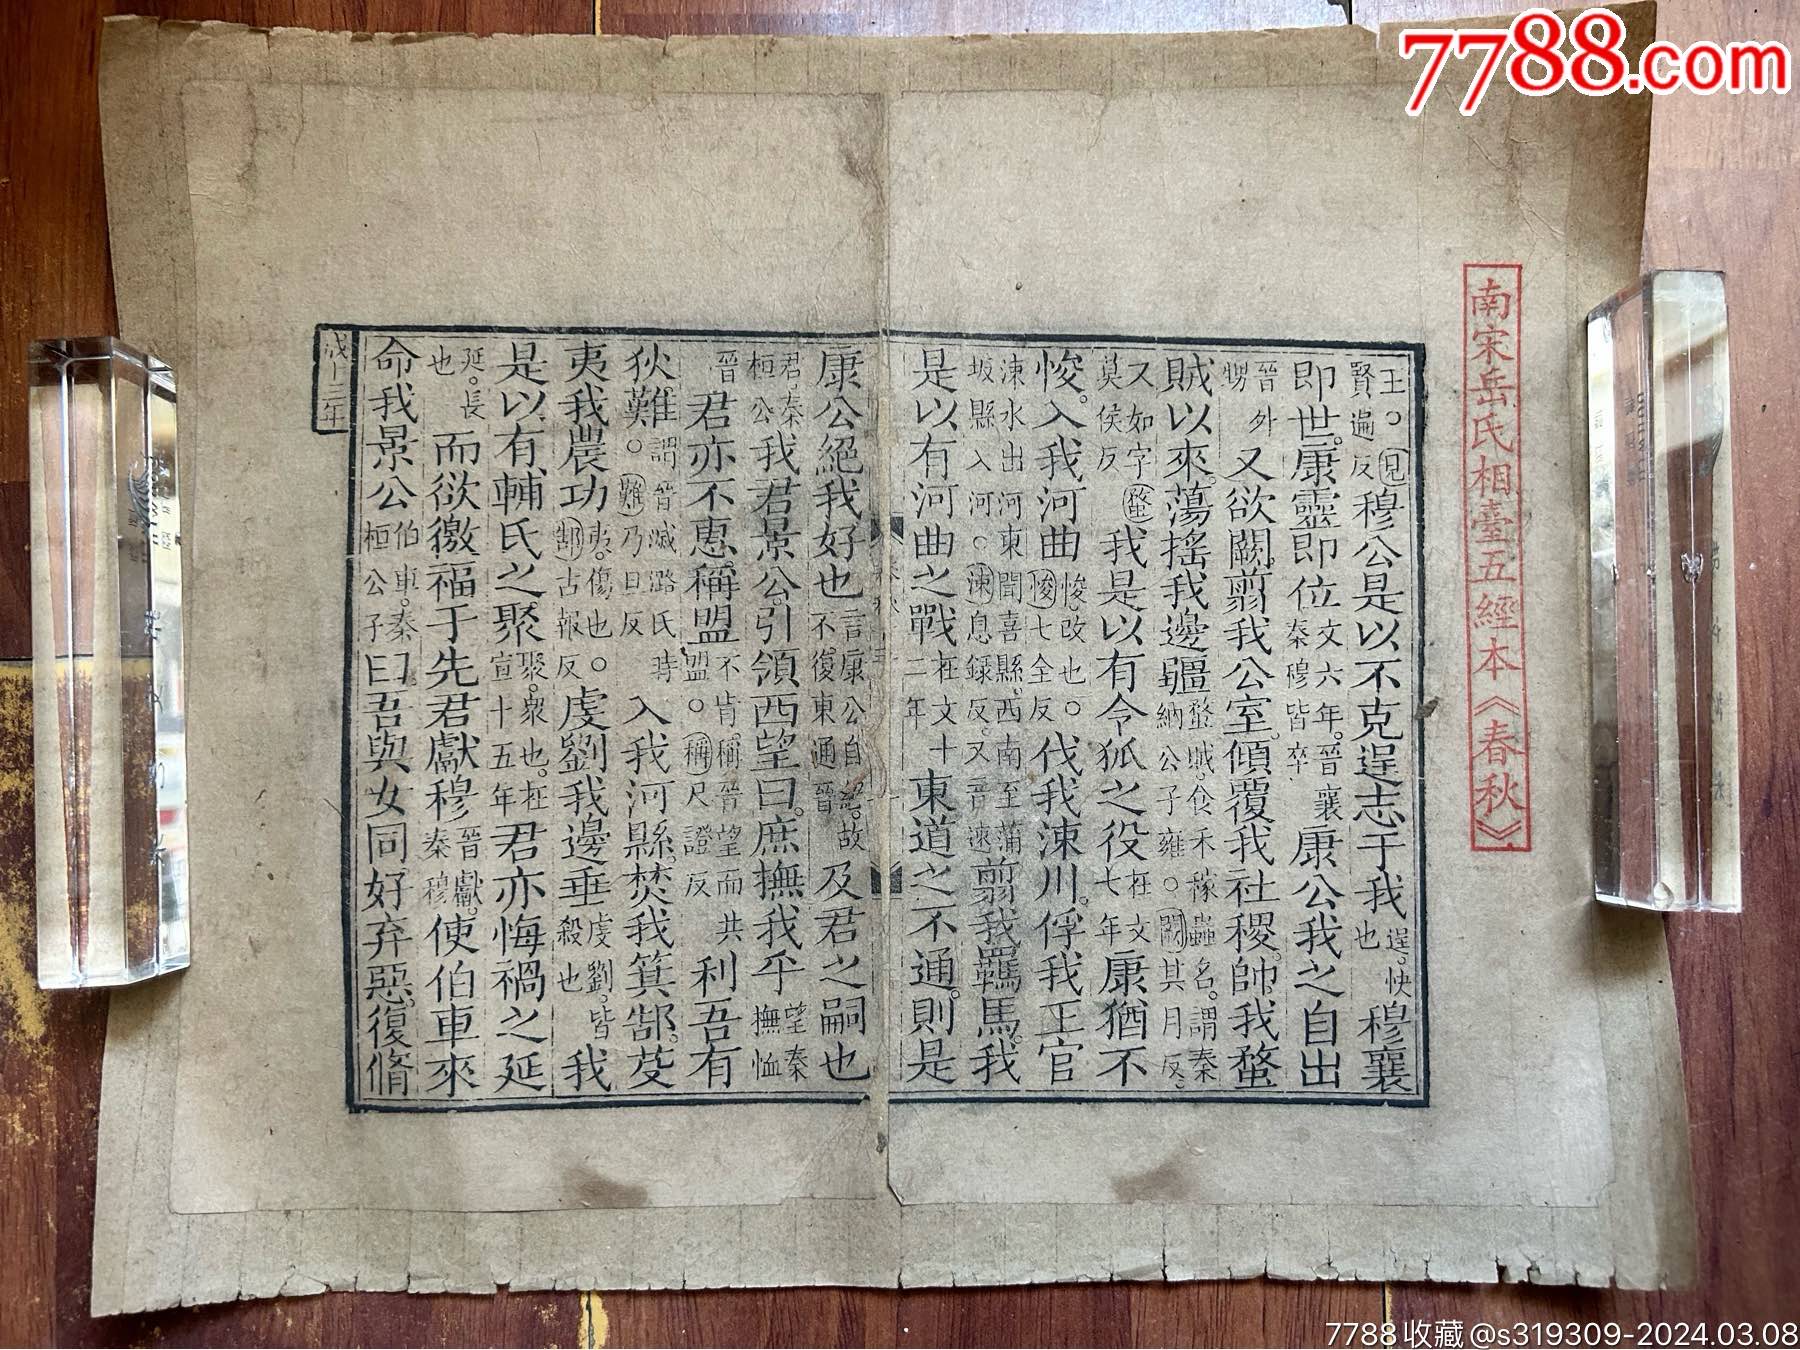 7788.com
南宋岳氏相臺五經本《春秋》
王。○見賢遍反穆公是以不克逞志于我逞。快也穆襄
即世。康靈即位文六年。晉襄秦穆皆卒康公我之自出
晉外甥又欲闕。翦我公室。傾覆我社稷。帥我蝥
賊以來。蕩搖我邊疆蝥賊。食禾稼蟲名。謂秦納公子雍。○闕其月反。
又如字蝥莫侯反我是以有令狐之役在文七年康猶不
悛。入我河曲悛。改也。○悛七全反伐我涑川。俘我王官
涑水出河東聞喜縣。西南至蒲坂縣入河。○涑息録反。又音速翦我羈馬。我
是以有河曲之戰在文十二年東道之不通。則是
康公絕我好也言康公自絕。故不復東通晉及君之嗣也
君。秦桓公我君景公。引領西望曰。庶撫我乎望秦撫恤
晉君亦不惠稱盟不肯。稱晉望而共盟。○稱尺證反利吾有
狄難。謂晉滅潞氏時○難乃旦反入我河縣。焚我箕郜。芟
夷我農功夷。傷也。○郜古報反虔劉我邊垂虔劉。皆殺也我
是以有輔氏之聚聚。衆也。在宣十五年君亦悔禍之延
延。長也而欲徼福于先君獻穆晉獻。秦穆使伯車來
命我景公伯車。秦桓公子曰吾與女同好弃惡。復脩
成十三年
7788收藏@s319309-2024.03.08